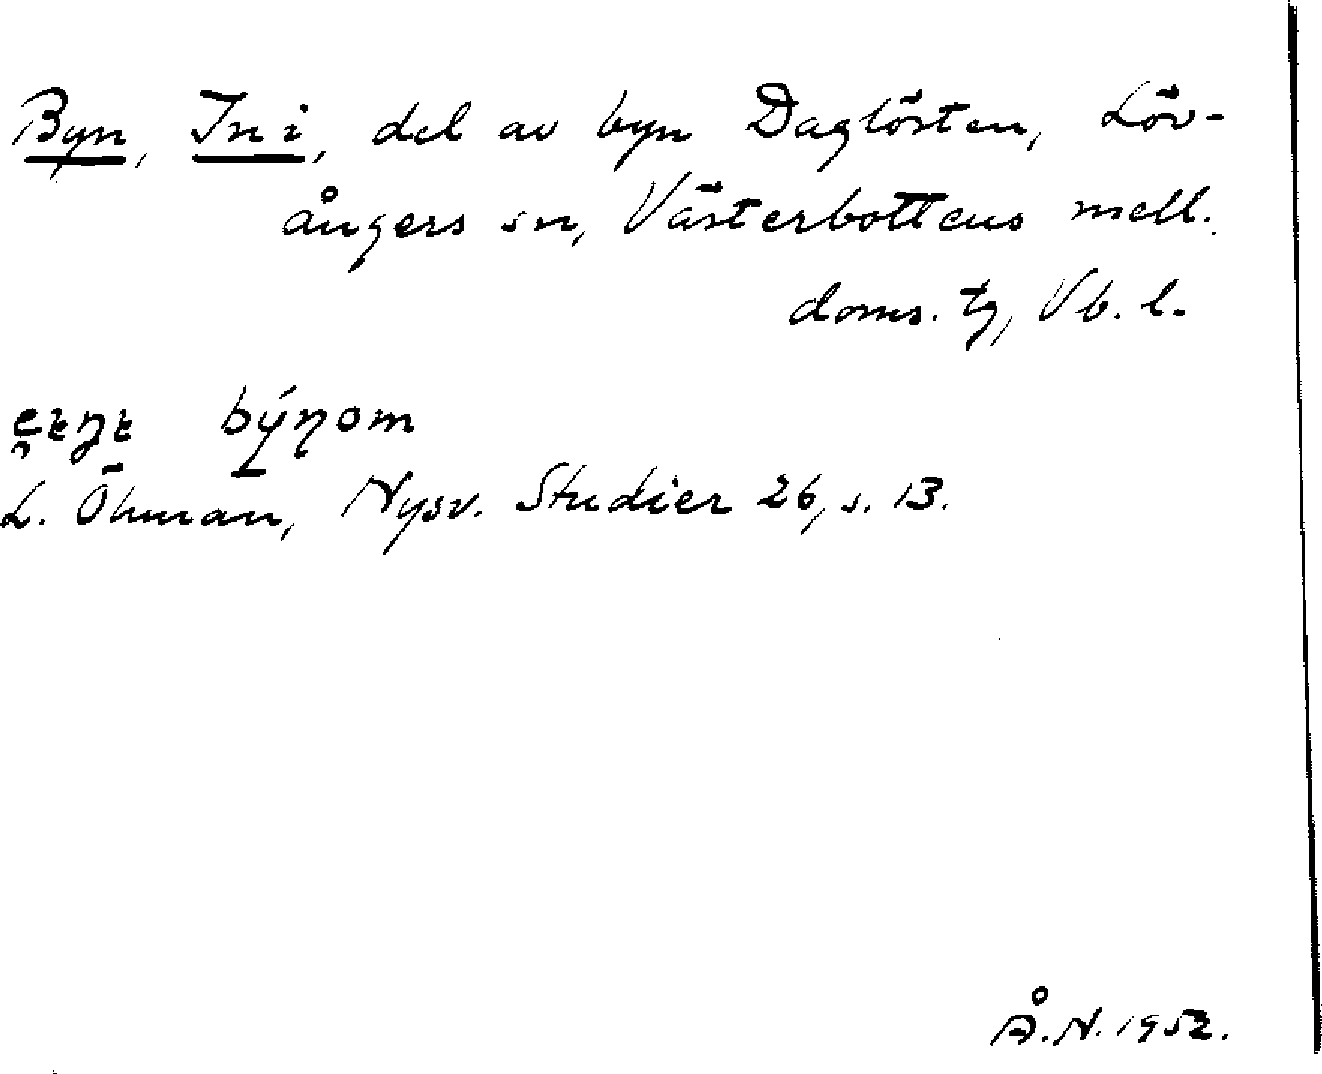 Byn, In i, del av byn Daglösten, Löv-
ångers sn, Västerbottens mell.
doms. tg, Vb. l.
býŋom
L. Öhman, Nysv. Studier 26, s. 13.
Å. N. 1952.